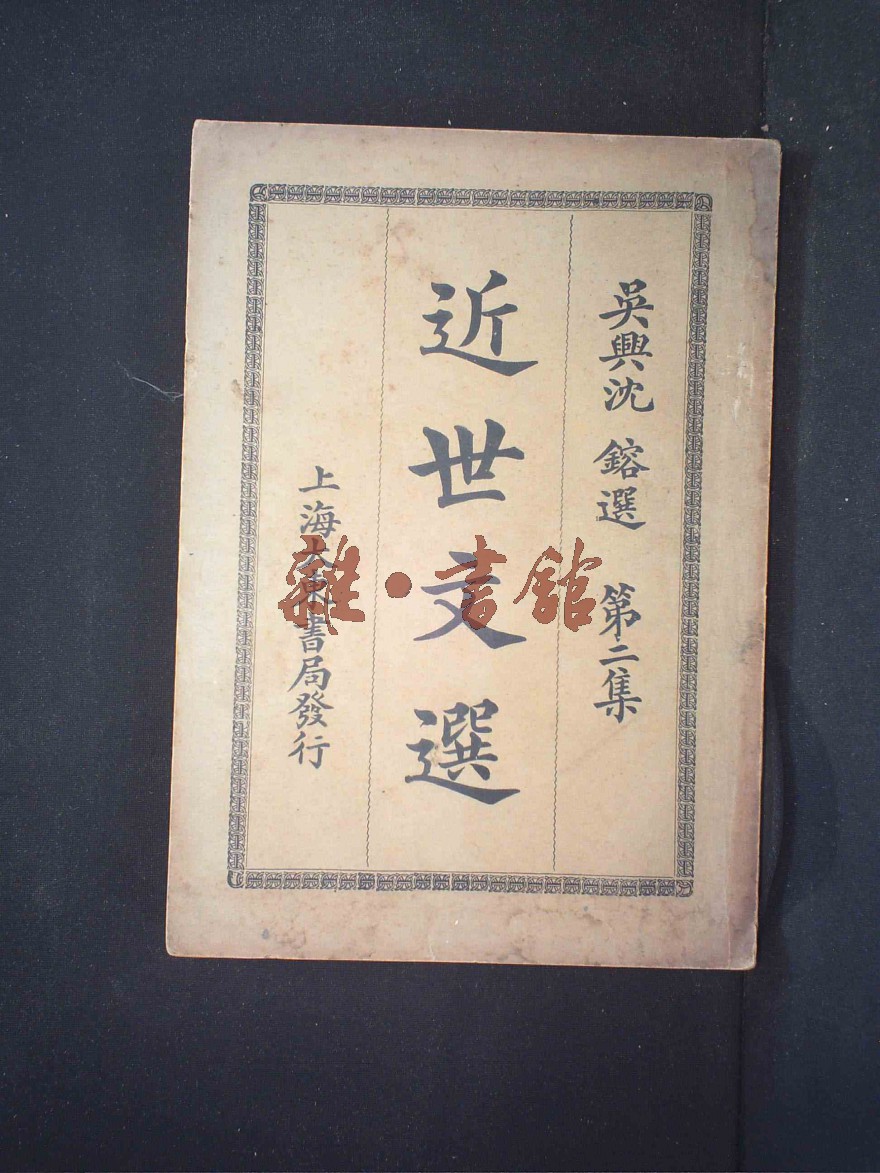 吳興沈鎔選 第二集
近世文選
上海大東書局發行
雜·書館